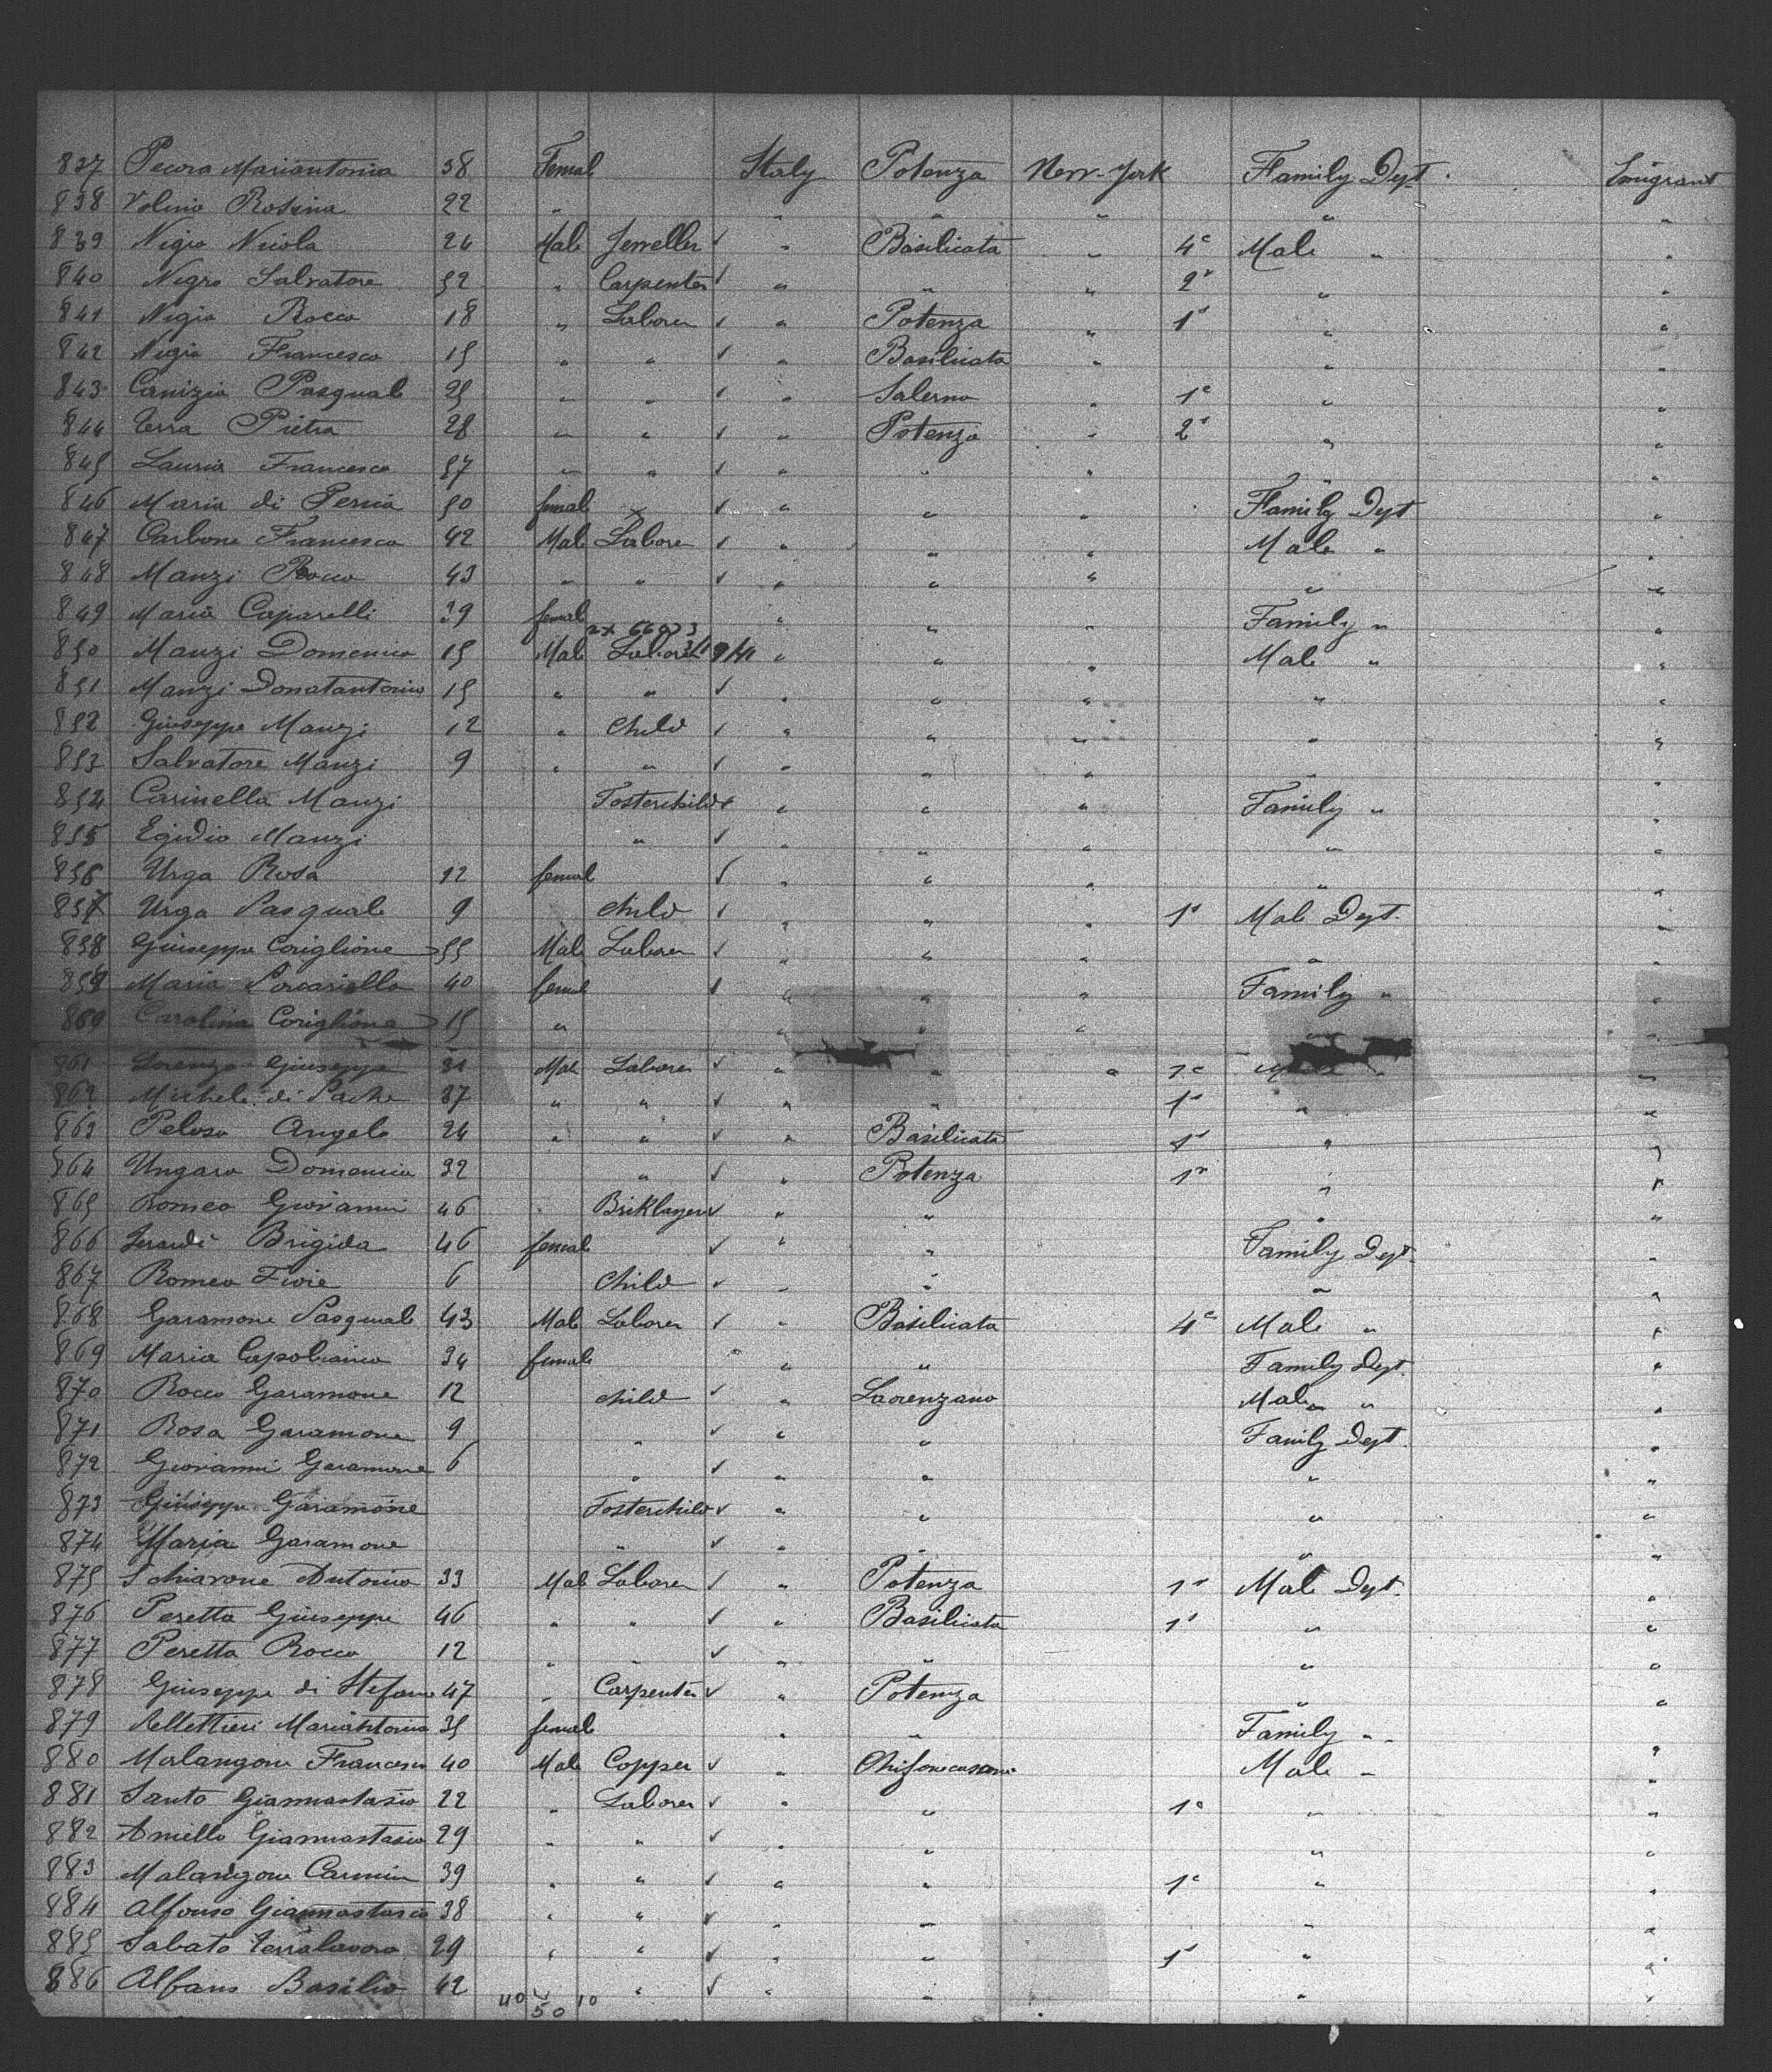 837 Pecora Mariantonia 38 Femal Italy Potenza New-York Family Dept. Emigrant
838 Volino Rosina 22 " " " " " "
839 Nigro Nicola 24 Male Jeweller ✓ " Basilicata " 4c Male " "
840 Nigro Salvatore 52 " Carpenter ✓ " " " 2" " "
841 Nigro Rocco 18 " Laborer ✓ " Potenza " 1" " "
842 Nigro Francesco 15 " " ✓ " Basilicata " " "
843 Canizia Pasquale 25 " " ✓ " Salerno " 1c " "
844 Terra Pietra 28 " " ✓ " Potenza " 2" " "
845 Lauria Francesco 57 " " ✓ " " " " "
846 Maria di Persia 50 femal × ✓ " " " Family Dept "
847 Carbone Francesco 42 Male Laborer ✓ " " " Male " "
848 Manzi Rocco 43 " " ✓ " " " " "
849 Maria Caparelli 39 femal " " " Family " "
2x 66973
850 Manzi Domenico 15 Male Laborer " " " Male " "
851 Manzi Donatantonio 15 " " ✓ " " " " "
852 Giuseppe Manzi 12 " Child ✓ " " " " "
853 Salvatore Manzi 9 " " ✓ " " " " "
854 Carinella Manzi Fosterchild ✓ " " " Family " "
855 Egidio Manzi " ✓ " " " " "
856 Urga Rosa 12 femal ✓ " " " " "
857 Urga Pasquale 9 child ✓ " " " 1" Male Dept. "
858 Giuseppe Coriglione 55 Male Laborer ✓ " " " " "
859 Maria Porcariello 40 femal ✓ " " " Family " "
860 Carolina Coriglione 15 " " " " " "
861 Lorenzo Giuseppe 31 Male Laborer ✓ " " " 1c Male " "
862 Michele di 37 " " ✓ " " 1" " "
863 Peloso Angelo 24 " " ✓ " Basilicata 1" " "
864 Ungaro Domenico 32 " ✓ " Potenza 1" " "
865 Romeo Giovanni 46 " Briklayer ✓ " " " "
866 Gerardi Brigida 46 femal ✓ " " Family Dept. "
867 Romeo 6 Child ✓ " " " "
868 Garamone Pasquale 43 Male Laborer ✓ " Basilicata 4c Male " "
869 Maria Capobianco 34 female " " Family Dept. "
870 Rocco Garamone 12 child ✓ " Laorenzano Male " "
871 Rosa Garamone 9 " ✓ " " Family Dept. "
872 Giovanni Garamone 6 " ✓ " " " "
873 Giuseppe Garamone Fosterchild ✓ " " " "
874 Maria Garamone " ✓ " " " "
875 Schiavone Antonio 33 Male Laborer ✓ " Potenza 1" Male Dept. "
876 Peretta Giuseppe 46 " " ✓ " Basilicata 1" " "
877 Peretta Rocco 12 " " ✓ " " " "
878 Giuseppe di Stefano 47 " Carpenter ✓ " Potenza " "
879 Mariantonia 35 female " " Family " "
880 Malangone Francesco 40 Male Copper ✓ " Male " "
881 Santo Giannastasio 22 " Laborer ✓ " " 1c " "
882 Aniello Giannastasio 29 " " ✓ " " " "
883 Malangone Carmin 39 " " ✓ " " 1c " "
884 Alfonso Giannastasio 38 " " ✓ " " " "
885 Sabato Terralavoro 29 " " ✓ " " 1" " "
886 Alfano Basilio 42 " " ✓ " " " "
40 50 10